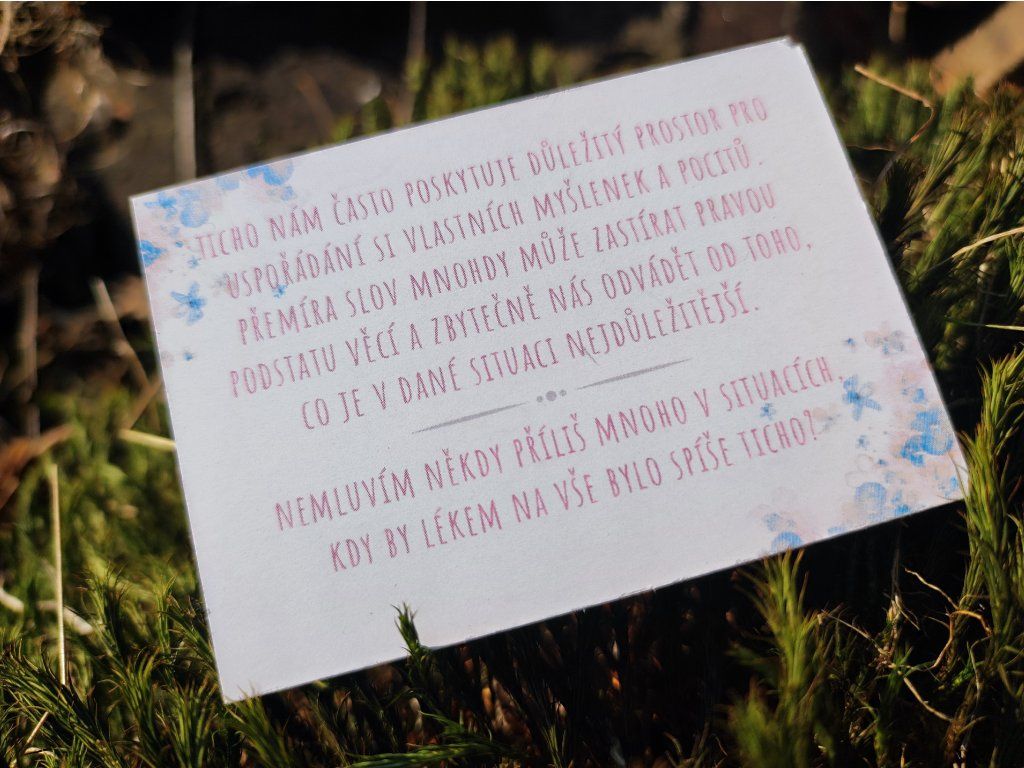 TICHO NÁM ČASTO POSKYTUJE DŮLEŽITÝ PROSTOR PRO
USPOŘÁDÁNÍ SI VLASTNÍCH MYŠLENEK A POCITŮ.
PŘEMÍRA SLOV MNOHDY MŮŽE ZASTÍRAT PRAVOU
PODSTATU VĚCÍ A ZBYTEČNĚ NÁS ODVÁDĚT OD TOHO,
CO JE V DANÉ SITUACI NEJDŮLEŽITĚJŠÍ.
NEMLUVÍM NĚKDY PŘÍLIŠ MNOHO V SITUACÍCH,
KDY BY LÉKEM NA VŠE BYLO SPÍŠE TICHO?